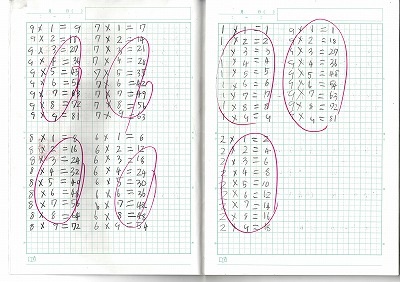 9 × 1 = 9
9 × 2 = 18
9 × 3 = 27
9 × 4 = 36
9 × 5 = 45
9 × 6 = 54
9 × 7 = 63
9 × 8 = 72
9 × 9 = 81
7 × 1 = 7
7 × 2 = 14
7 × 3 = 21
7 × 4 = 28
7 × 5 = 35
7 × 6 = 42
7 × 7 = 49
7 × 8 = 56
7 × 9 = 63
8 × 1 = 8
8 × 2 = 16
8 × 3 = 24
8 × 4 = 32
8 × 5 = 40
8 × 6 = 48
8 × 7 = 56
8 × 8 = 64
8 × 9 = 72
6 × 1 = 6
6 × 2 = 12
6 × 3 = 18
6 × 4 = 24
6 × 5 = 30
6 × 6 = 36
6 × 7 = 42
6 × 8 = 48
6 × 9 = 54
1 × 1 = 1
1 × 2 = 2
1 × 3 = 3
1 × 4 = 4
1 × 5 = 5
1 × 6 = 6
1 × 7 = 7
1 × 8 = 8
1 × 9 = 9
9 × 1 = 9
9 × 2 = 18
9 × 3 = 27
9 × 4 = 36
9 × 5 = 45
9 × 6 = 54
9 × 7 = 63
9 × 8 = 72
9 × 9 = 81
2 × 1 = 2
2 × 2 = 4
2 × 3 = 6
2 × 4 = 8
2 × 5 = 10
2 × 6 = 12
2 × 7 = 14
2 × 8 = 16
2 × 9 = 18